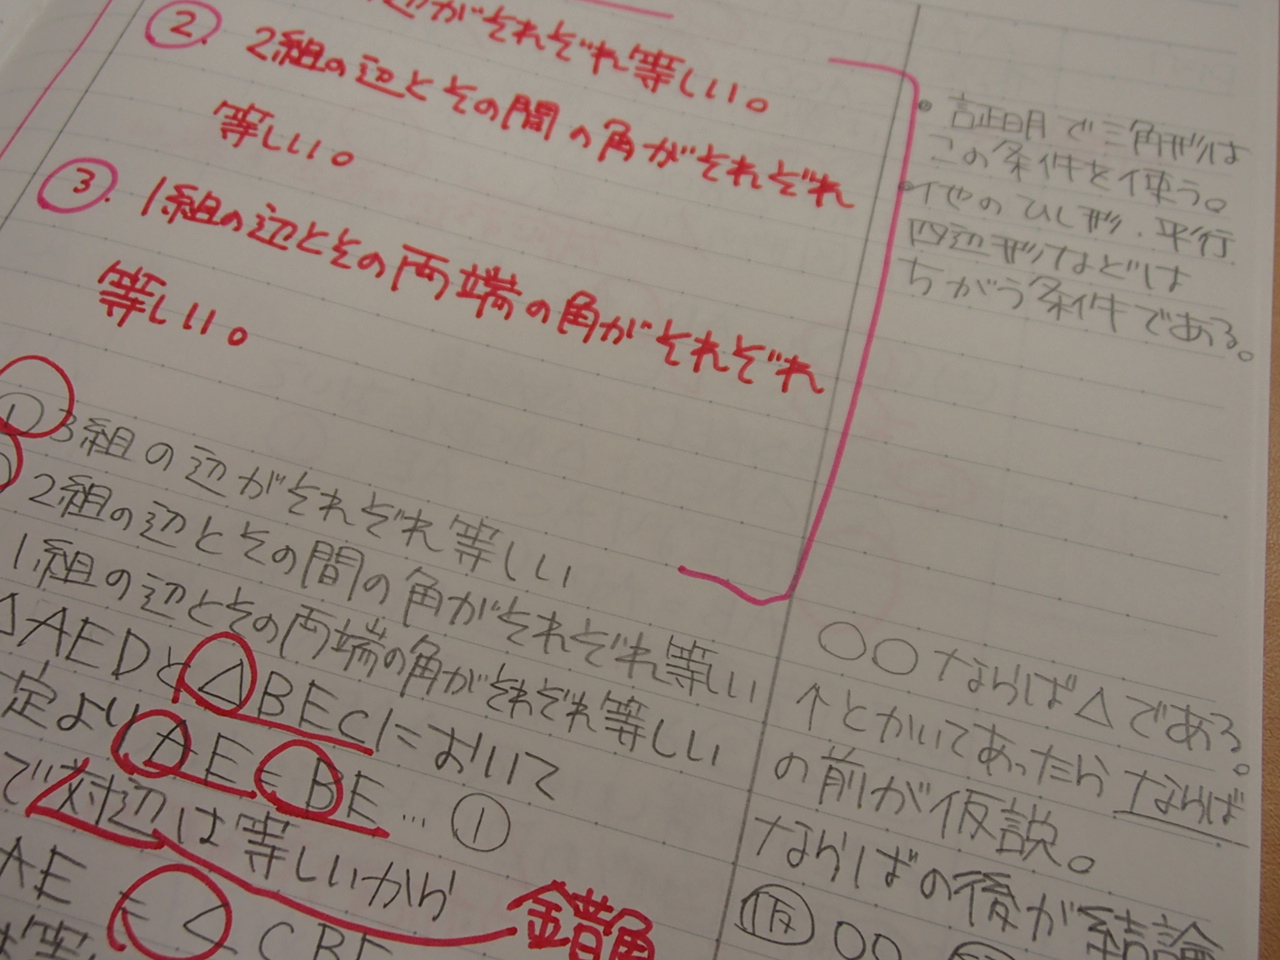 辺がそれぞれ等しい。
②. 2組の辺とその間の角がそれぞれ
等しい。
③. 1組の辺とその両端の角がそれぞれ
等しい。
① 3組の辺がそれぞれ等しい
2組の辺とその間の角がそれぞれ等しい
1組の辺とその両端の角がそれぞれ等しい
△AEDと△BECにおいて
定より AE = BE … ①
で対辺は等しいから
錯角
AE = ∠CBE
・証明で三角形は
この条件を使う。
・他のひし形、平行
四辺形などは
ちがう条件である。
○○ならば△である。
↑とかいてあったらならば
の前が仮説。
ならばの後が結論
仮 ○○